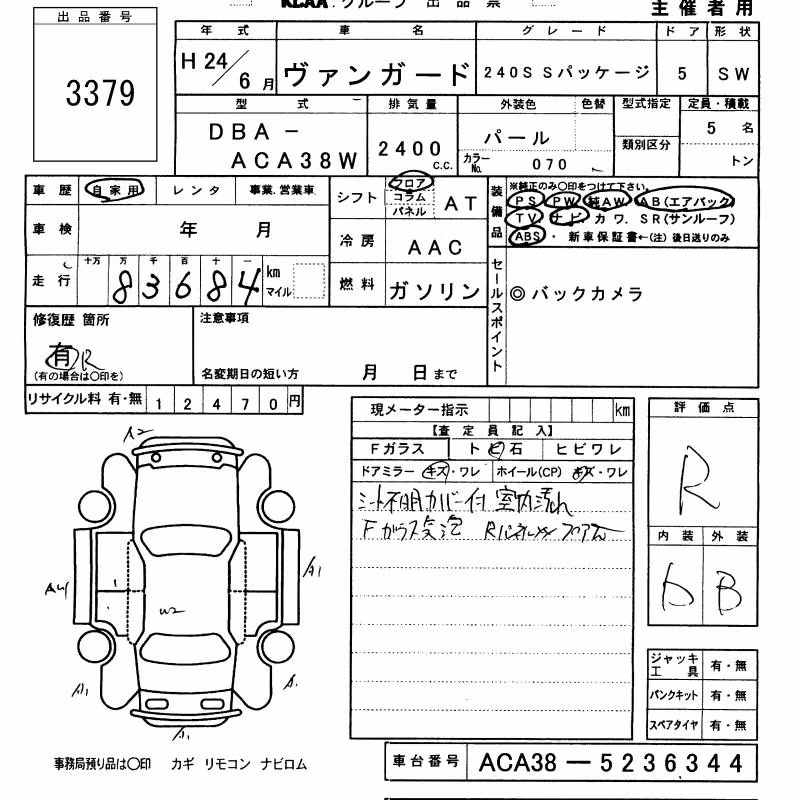 KCAA.グループ 出品票
主催者用
出品番号
3379
年式 車名 グレード ドア 形状
H24/6月 ヴァンガード 240S Sパッケージ 5 SW
型式 排気量 外装色 色替 型式指定 定員・積載
DBA-
ACA38W
2400 c.c.
パール
カラーNo. 070
類別区分
5 名
トン
車歴 自家用 レンタ 事業.営業車
車検 年 月
走行 十万 万 千 百 十 一
83684 km マイル
シフト フロア コラム パネル AT
冷房 AAC
燃料 ガソリン
装備品
※純正のみ○印をつけて下さい。
PS PW 純AW AB(エアバック)
TV ナビ カワ. SR(サンルーフ)
ABS ・ 新車保証書←(注) 後日送りのみ
セールスポイント
◎バックカメラ
修復歴 箇所
有 R
(有の場合は○印を)
注意事項
名変期日の短い方 月 日まで
リサイクル料 有・無 12470円
現メーター指示 km
【査定員記入】
Fガラス トビ石 ヒビワレ
ドアミラー キズ・ワレ ホイール(CP) キズ・ワレ
シート不明カバー付 室内汚れ
Fガラス気泡
評価点
R
内装 外装
D B
A2
A4
A1
W2
A1
A1
ジャッキ工具 有・無
パンクキット 有・無
スペアタイヤ 有・無
事務局預り品は○印 カギ リモコン ナビロム
車台番号 ACA38-5236344